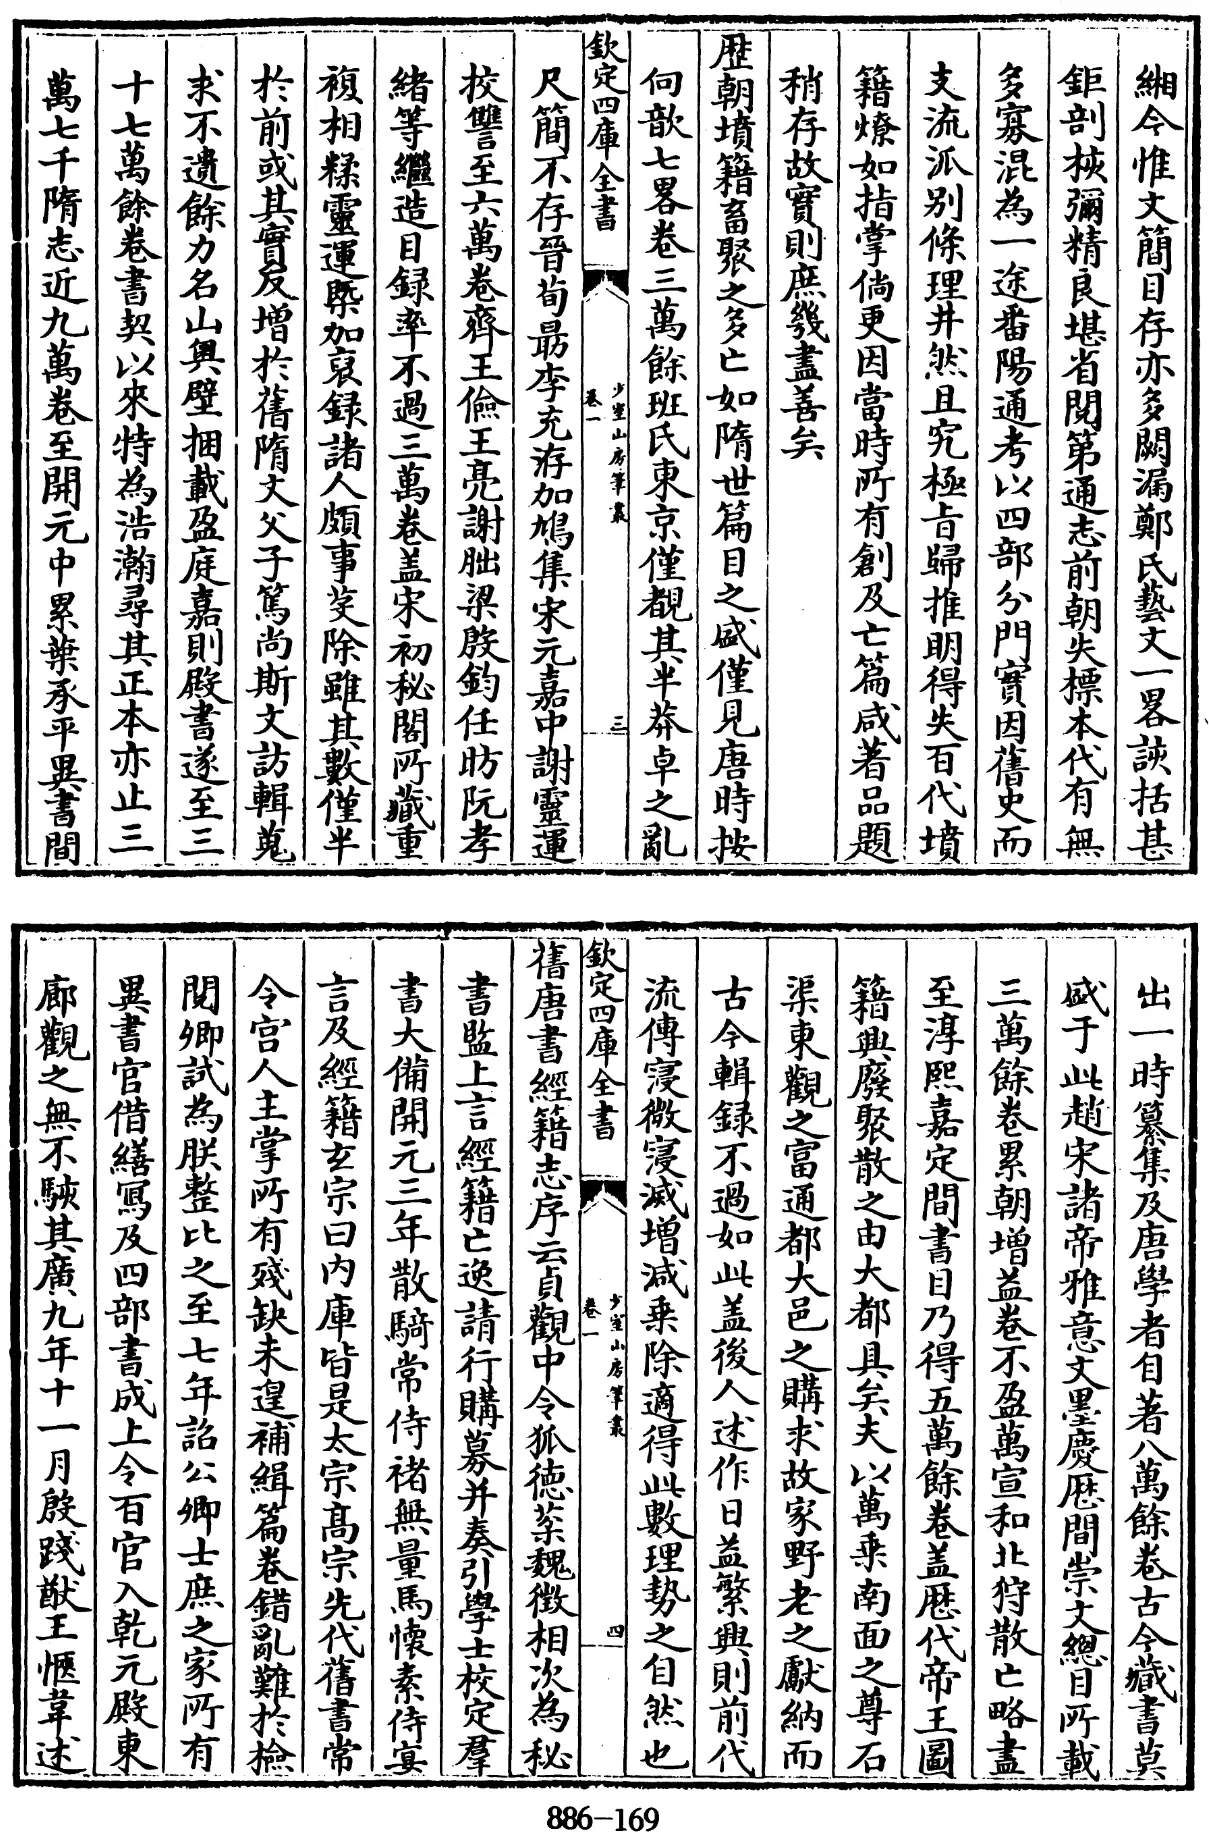 緗今惟文簡目存亦多闕漏鄭氏藝文一畧該括甚
鉅剖核彌精良堪省閱第通志前朝失標本代有無
多寡混為一途番陽通考以四部分門實因舊史而
支流派别條理井然且究極旨歸推明得失百代墳
籍燎如指掌倘更因當時所有創及亡篇咸著品題
稍存故實則庶幾盡善矣
歴朝墳籍畜聚之多亡如隋世篇目之盛僅見唐時按
向歆七畧卷三萬餘班氏東京僅覩其半莽卓之亂
欽定四庫全書
少室山房筆叢
卷一
三
尺簡不存晉荀勗李充洊加鳩集宋元嘉中謝靈運
挍讐至六萬卷齊王儉王亮謝朏梁殷鈞任昉阮孝
緒等繼造目録率不過三萬卷盖宋初秘閣所藏重
複相糅靈運槩加裒録諸人頗事芟除雖其數僅半
於前或其實反增於舊隋文父子篤尚斯文訪輯蒐
求不遺餘力名山奥壁捆載盈庭嘉則殿書遂至三
十七萬餘卷書契以來特為浩瀚尋其正本亦止三
萬七千隋志近九萬卷至開元中累葉承平異書間
出一時纂集及唐學者自著八萬餘卷古今藏書莫
盛于此趙宋諸帝雅意文墨慶厯間崇文總目所載
三萬餘卷累朝增益卷不盈萬宣和北狩散亡略盡
至淳熙嘉定間書目乃得五萬餘卷盖歴代帝王圖
籍興廢聚散之由大都具矣夫以萬乗南面之尊石
渠東觀之富通都大邑之購求故家野老之獻納而
古今輯録不過如此盖後人述作日益繁興則前代
流傳寖微寖滅增減乗除適得此數理勢之自然也
欽定四庫全書
少室山房筆叢
卷一
四
舊唐書經籍志序云貞觀中令狐德棻魏徴相次為秘
書監上言經籍亡逸請行購募并奏引學士校定羣
書大備開元三年散騎常侍禇無量馬懷素侍宴
言及經籍玄宗曰内庫皆是太宗髙宗先代舊書常
令宫人主掌所有殘缺未遑補緝篇卷錯亂難於檢
閱卿試為朕整比之至七年詔公卿士庶之家所有
異書官借繕寫及四部書成上令百官入乾元殿東
廊觀之無不駭其廣九年十一月殷踐猷王愜韋述
886-169